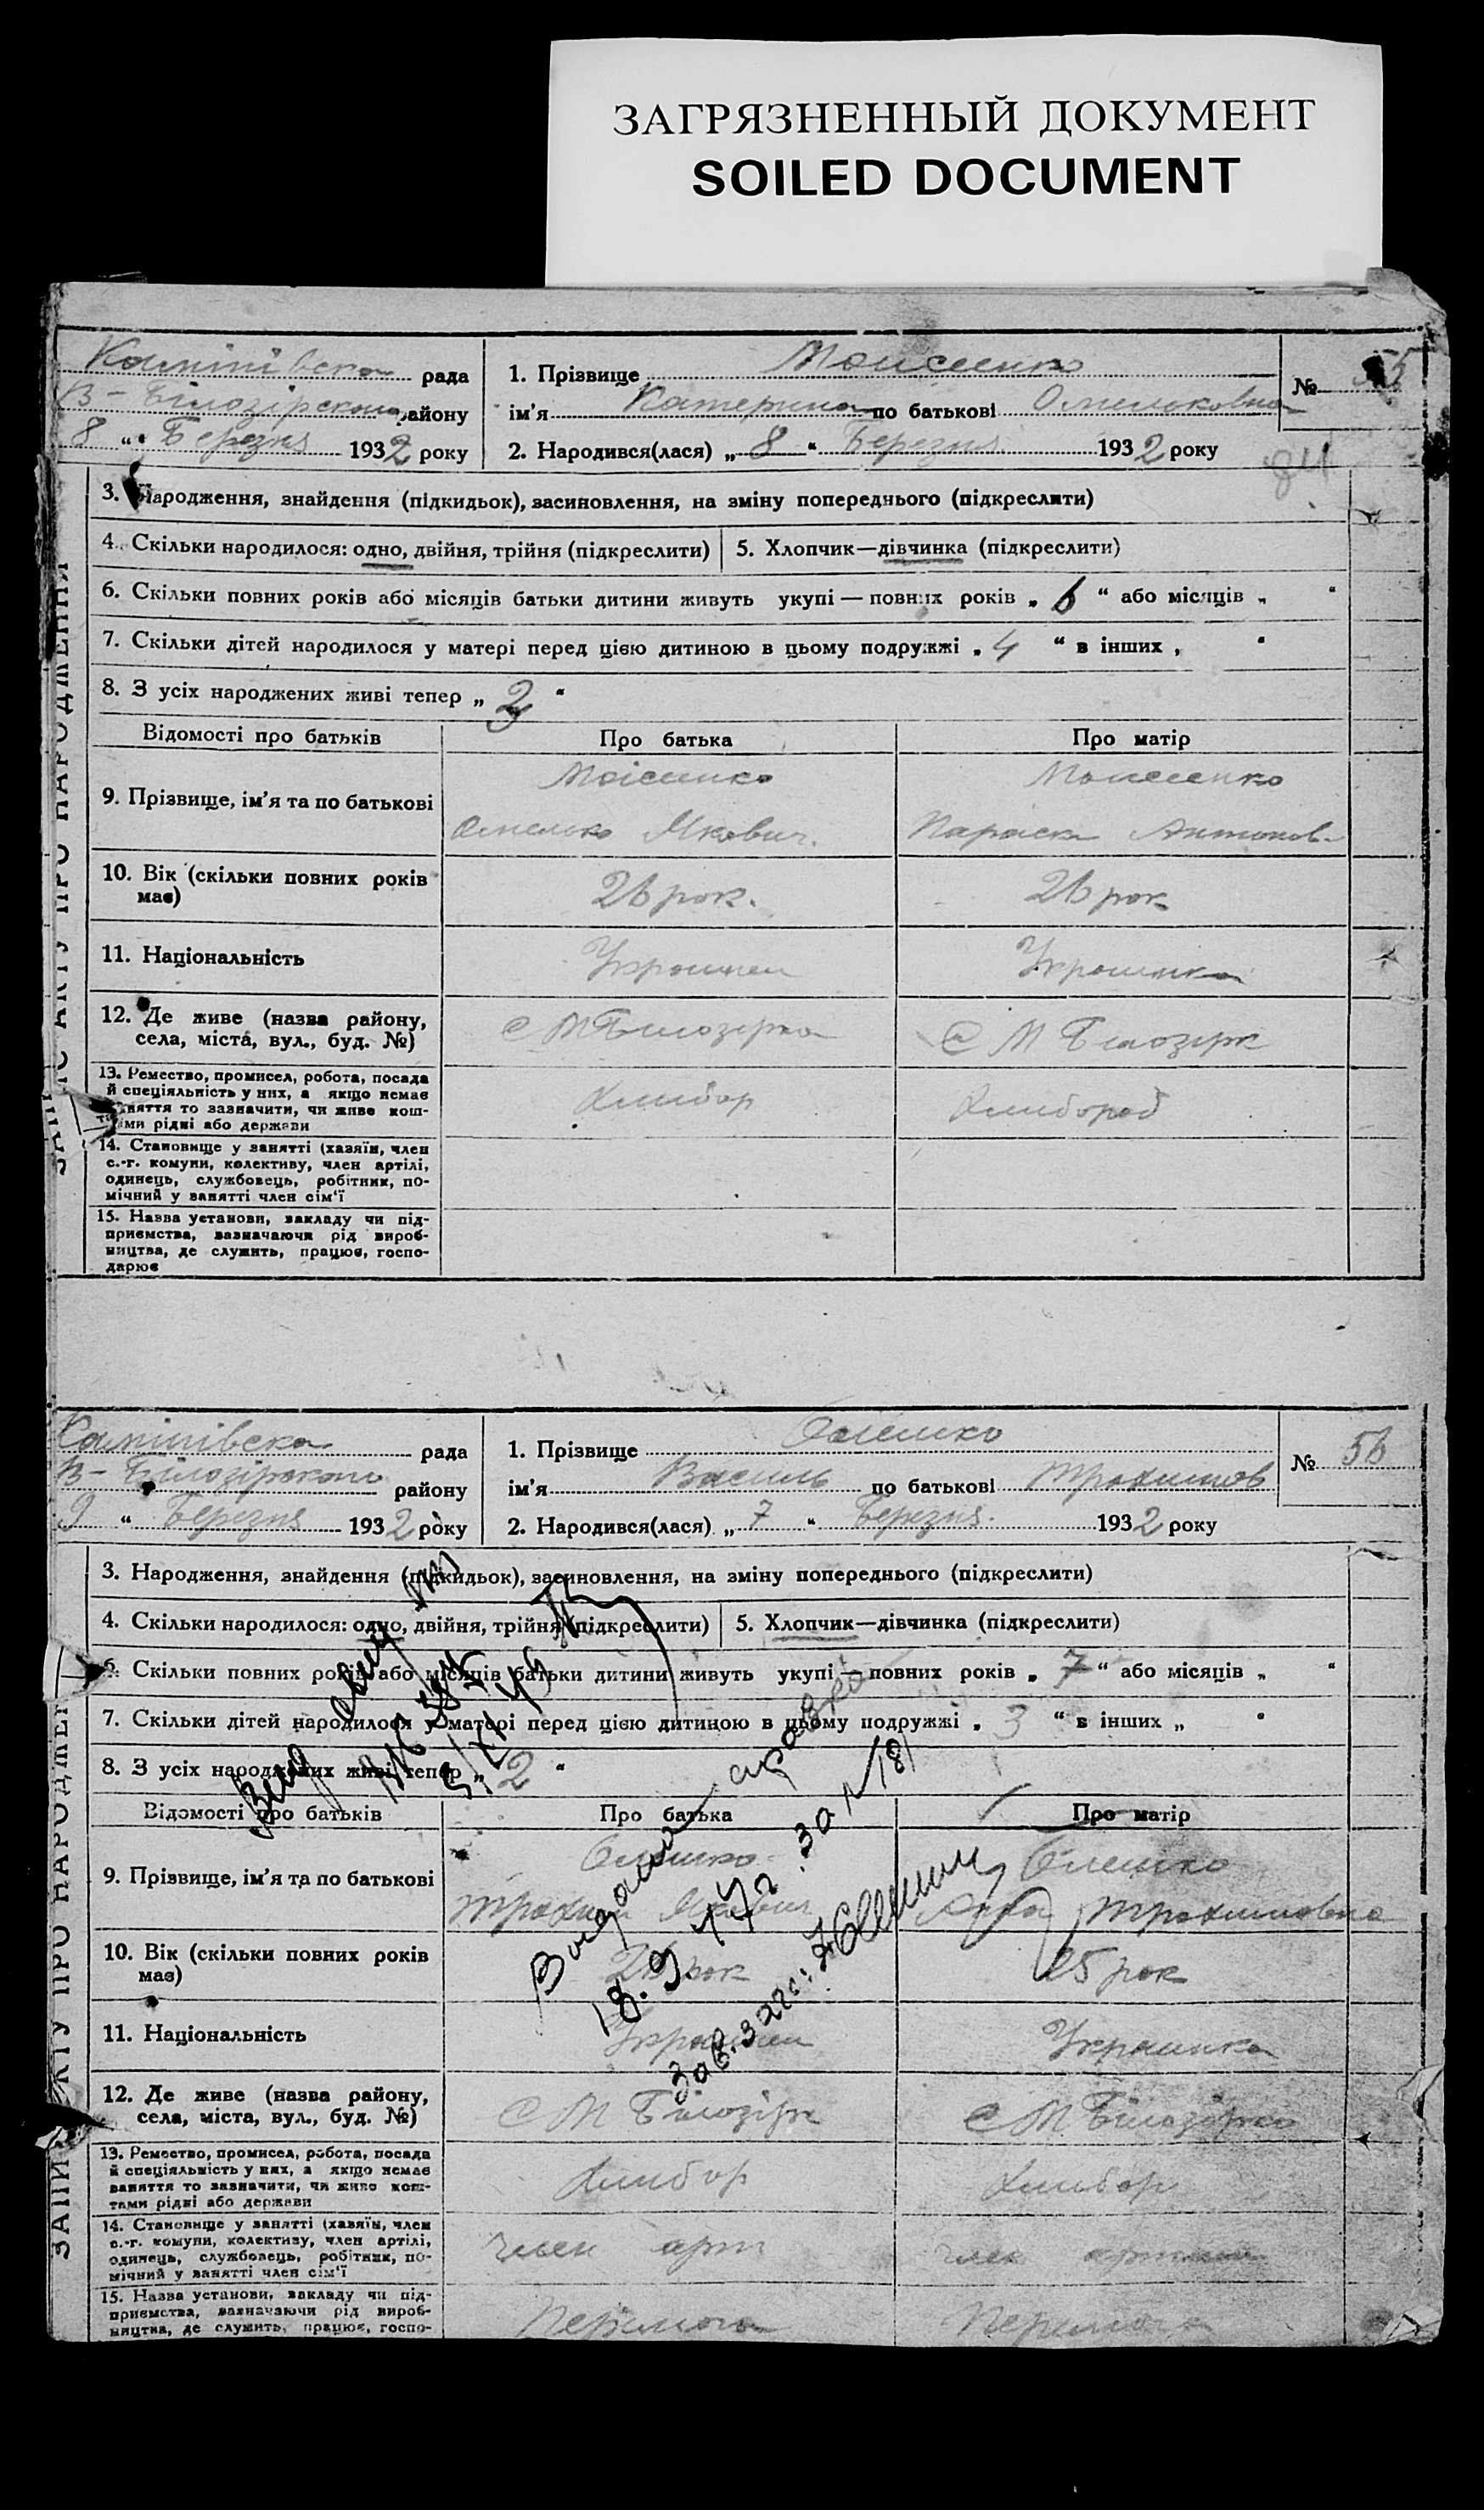 ЗАГРЯЗНЕННЫЙ ДОКУМЕНТ
SOILED DOCUMENT
рада
В- Білозірського району
8 " Березня 1932 року
1. Прізвище Моисеенко
ім'я Катерина по батькові Омельковна
2. Народився(лася) „ 8 " Березня 1932 року
№ 55
84
3. Народження, знайдення (підкидьок), засиновлення, на зміну попереднього (підкреслити)
4. Скільки народилося: одно, двійня, трійня (підкреслити)
5. Хлопчик—дівчинка (підкреслити)
6. Скільки повних років або місяців батьки дитини живуть укупі — повних років „ 6 " або місяців „ "
7. Скільки дітей народилося у матері перед цією дитиною в цьому подружжі „ 4 " в інших „ "
8. З усіх народжених живі тепер „ "
Відомості про батьків
Про батька
Про матір
9. Прізвище, ім'я та по батькові
Моісеенко
Омелько Якович.
Моисеенко
Параска Антонов.
10. Вік (скільки повних років має)
26 рок.
26 рок
11. Національність
Українец
Українка
12. Де живе (назва району,
села, міста, вул., буд. №)
С М Білозерка
С М Білозірк
13. Ремество, промисел, робота, посада
й спеціяльність у них, а якщо немає
заняття то зазначити, чи живе кош-
тами рідні або держави
Хлибор
Хлибороб
14. Становище у занятті (хазяїн, член
с.-г. комуни, колективу, член артілі,
одинець, службовець, робітник, по-
мічний у занятті член сім'ї
15. Назва установи, закладу чи під-
приємства, зазначаючи рід вироб-
ництва, де служить, працює, госпо-
дарює
ЗАПИС АКТУ ПРО НАРОДЖЕННЯ
рада
В- Білозірського району
9 " Березня 1932 року
1. Прізвище Олешко
ім'я Василь по батькові Трохимов
2. Народився(лася) „ 7 " Березня. 1932 року
№ 56
3. Народження, знайдення (підкидьок), засиновлення, на зміну попереднього (підкреслити)
4. Скільки народилося: одно, двійня, трійня (підкреслити)
5. Хлопчик—дівчинка (підкреслити)
6. Скільки повних років або місяців батьки дитини живуть укупі — повних років „ 7 " або місяців „ "
7. Скільки дітей народилося у матері перед цією дитиною в цьому подружжі „ 3 " в інших „ "
8. З усіх народжених живі тепер „ 2 "
Відомості про батьків
Про батька
Про матір
9. Прізвище, ім'я та по батькові
Олешко
Трохим Якович
Олешко
Трохимовна
10. Вік (скільки повних років має)
26 рок
25 рок
11. Національність
Українец
Українка
12. Де живе (назва району,
села, міста, вул., буд. №)
С М Білозірк
С М Білозірка
13. Ремество, промисел, робота, посада
й спеціяльність у них, а якщо немає
заняття то зазначити, чи живе кош-
тами рідні або держави
Хлибор
Хлибор
14. Становище у занятті (хазяїн, член
с.-г. комуни, колективу, член артілі,
одинець, службовець, робітник, по-
мічний у занятті член сім'ї
член арт
член артили
15. Назва установи, закладу чи під-
приємства, зазначаючи рід вироб-
ництва, де служить, працює, госпо-
Перемога
Перемога
справка
18. 9 47г. за № 181
Зав. загс:
ЗАПИС АКТУ ПРО НАРОДЖЕН